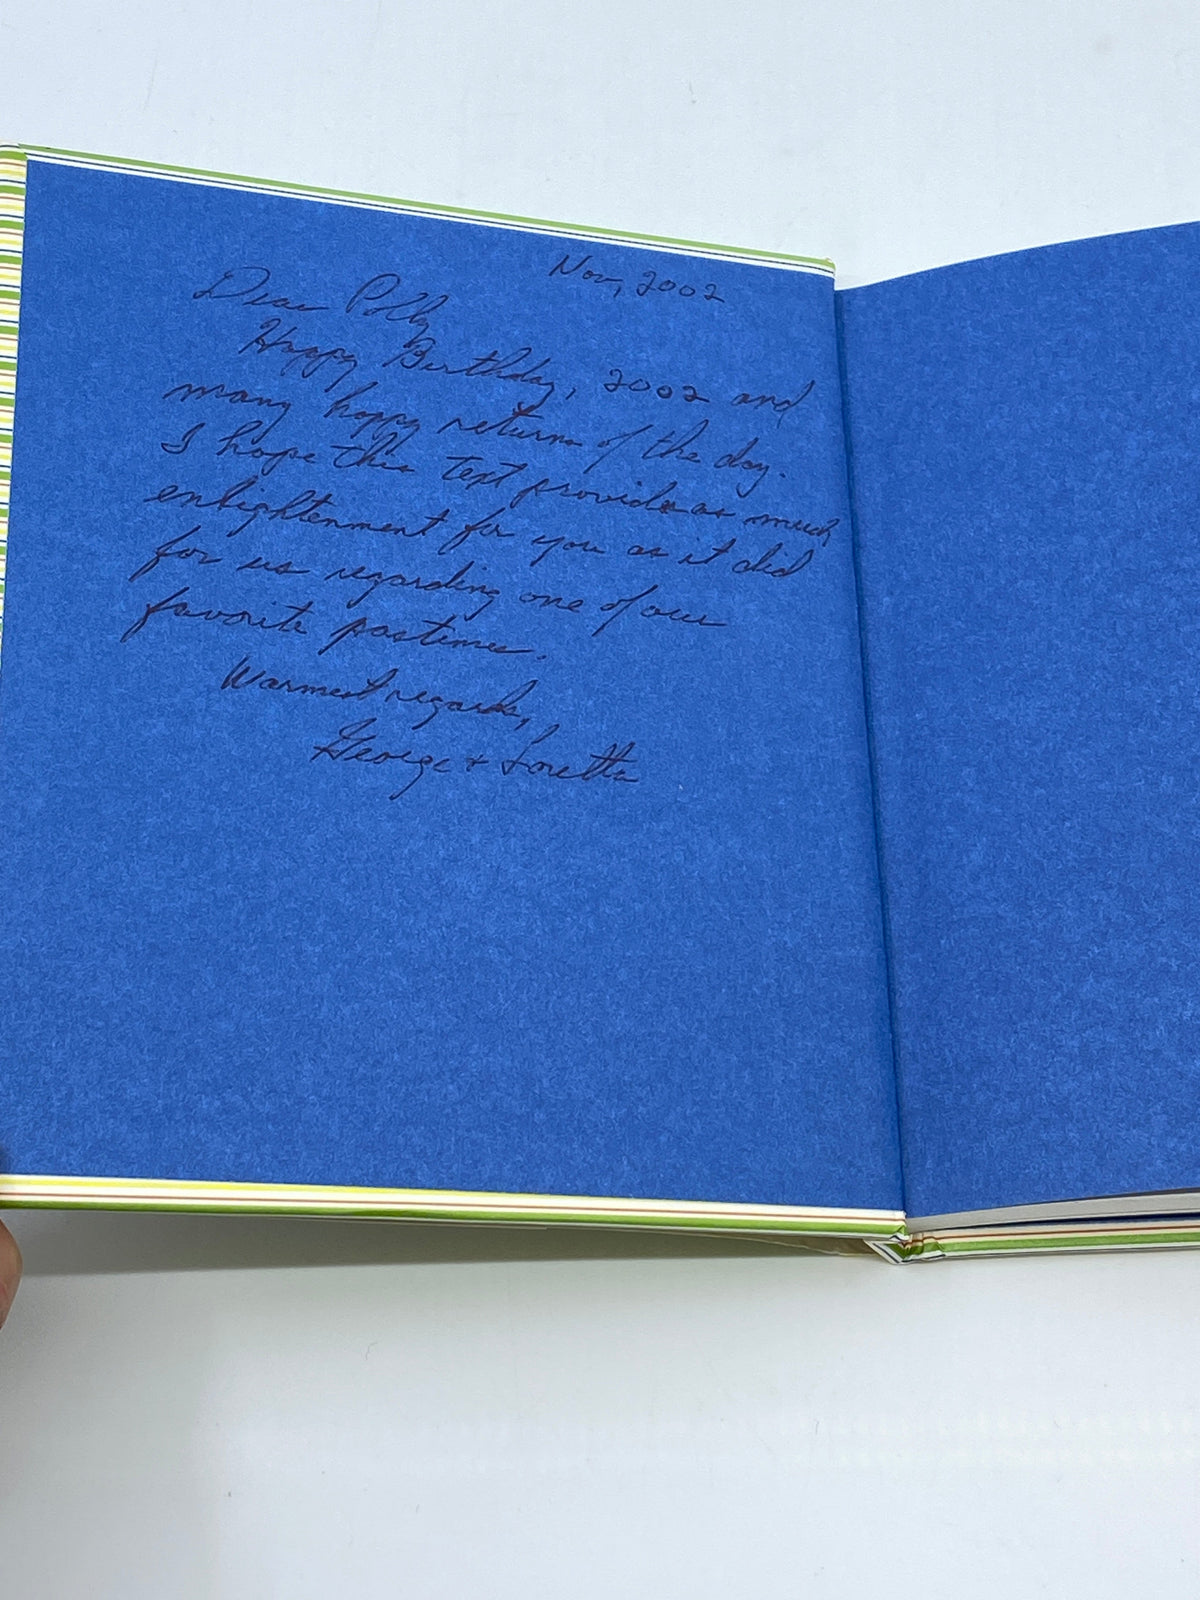 Nov, 2002
Dear Polly
Happy Birthday, 2002 and
many happy returns of the day.
I hope this text provides as much
enlightenment for you as it did
for us regarding one of our
favorite pastimes.
Warmest regards,
George + Loretta